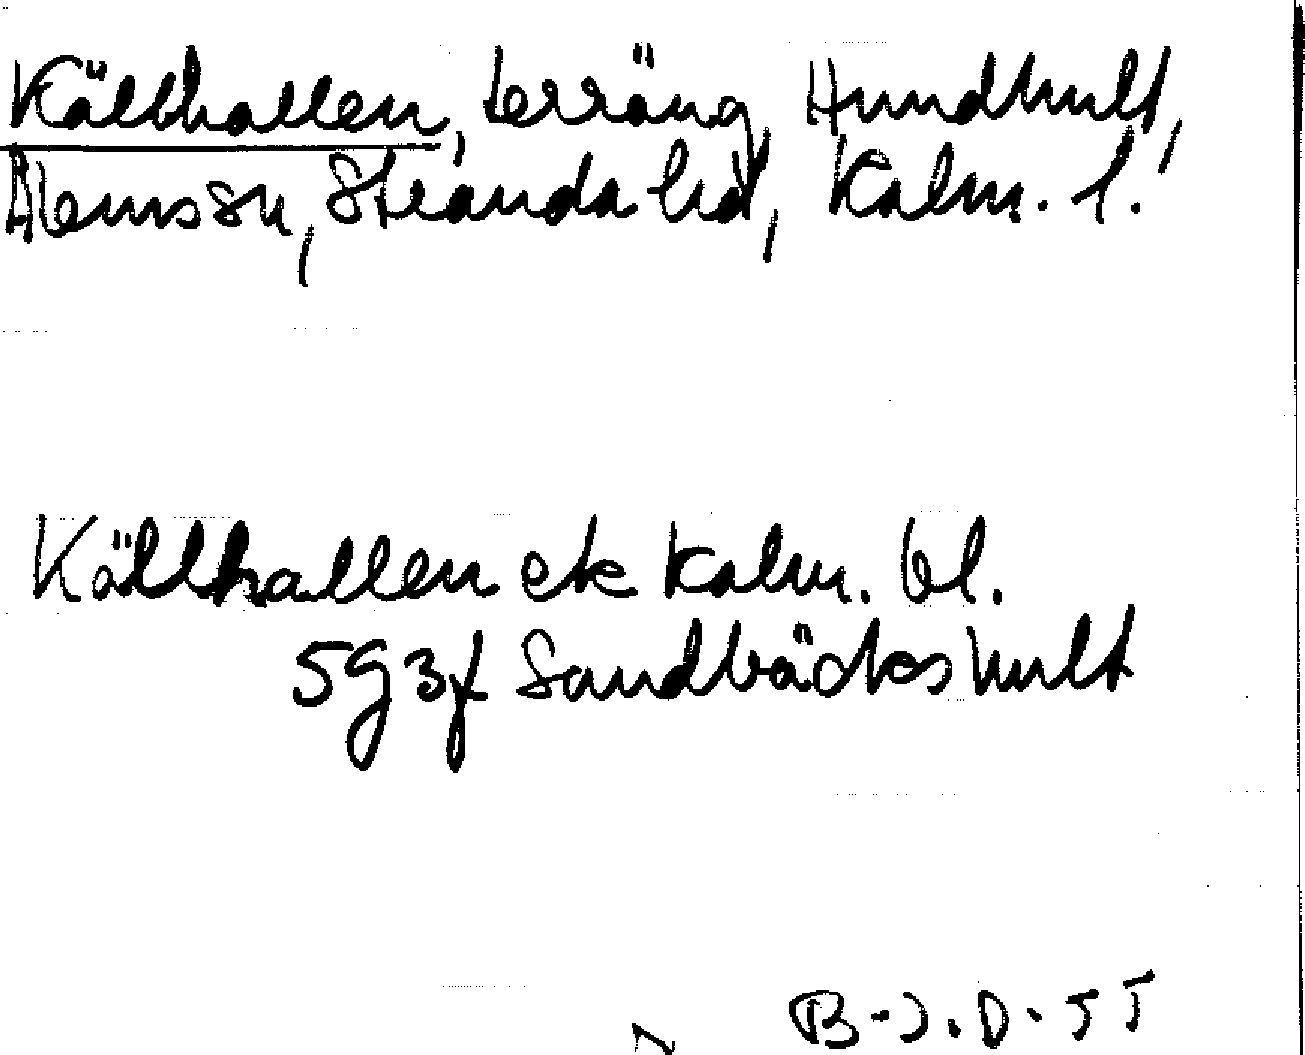 Källhallen, terräng, Hundhult,
Ålems sn, Stranda hd, Kalm. l.
Källhallen ek Kalm. bl.
5G3f Sandbäckshult
B-J.D. 55